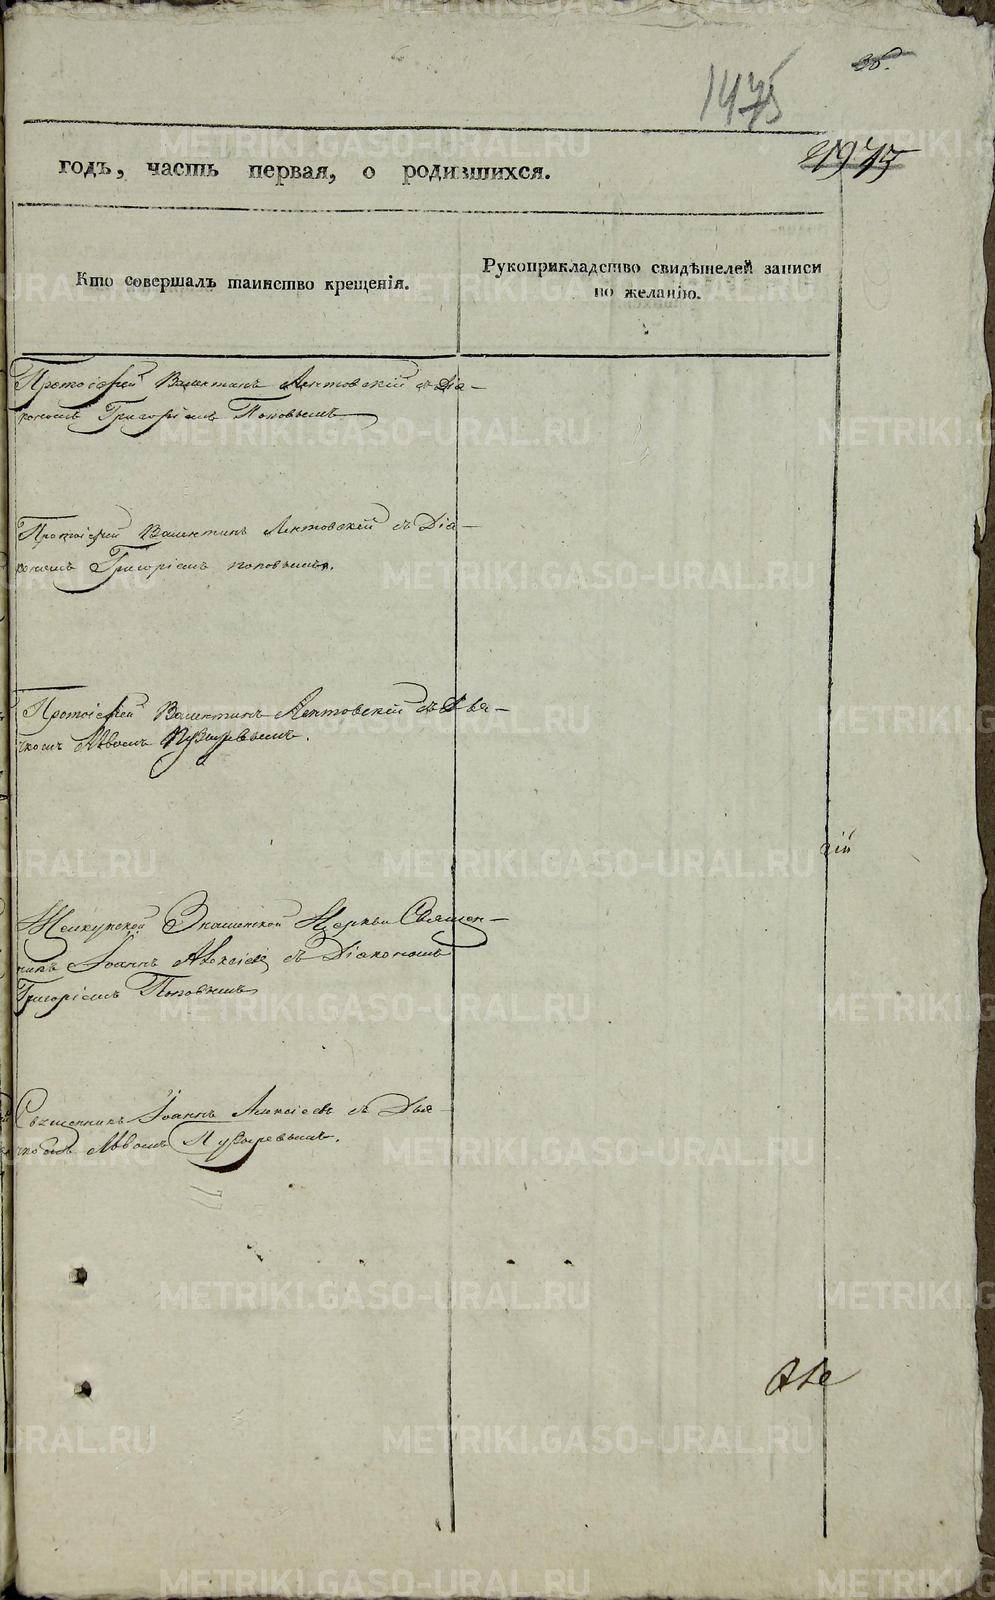 1475
36.
годъ, часть первая, о родившихся.
Кто совершалъ таинство крещенія.
Рукоприкладство свидѣтелей записи
по желанію.
Протоіерей Валентинъ Лентовскій съ Діа-
кономъ Григоріемъ Поповымъ
Протоіерей Валентинъ Лентовскій съ Діа-
кономъ Григоріемъ поповымъ.
Протоіерей Валентинъ Лентовскій съ Дья-
чкомъ Львомъ Пузыревымъ.
Щелкунской Знаменской Церкви Священ-
никъ Іоаннъ Алексіев съ Діакономъ
Григоріемъ Поповымъ
Священникъ Іоаннъ Алексіевъ съ Дья-
чкомъ Львомъ Пузыревымъ.
METRIKI.GASO-URAL.RU